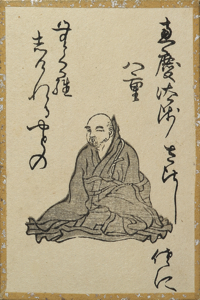 恵慶法師
八重
むくら
しけれるやとの
さひし